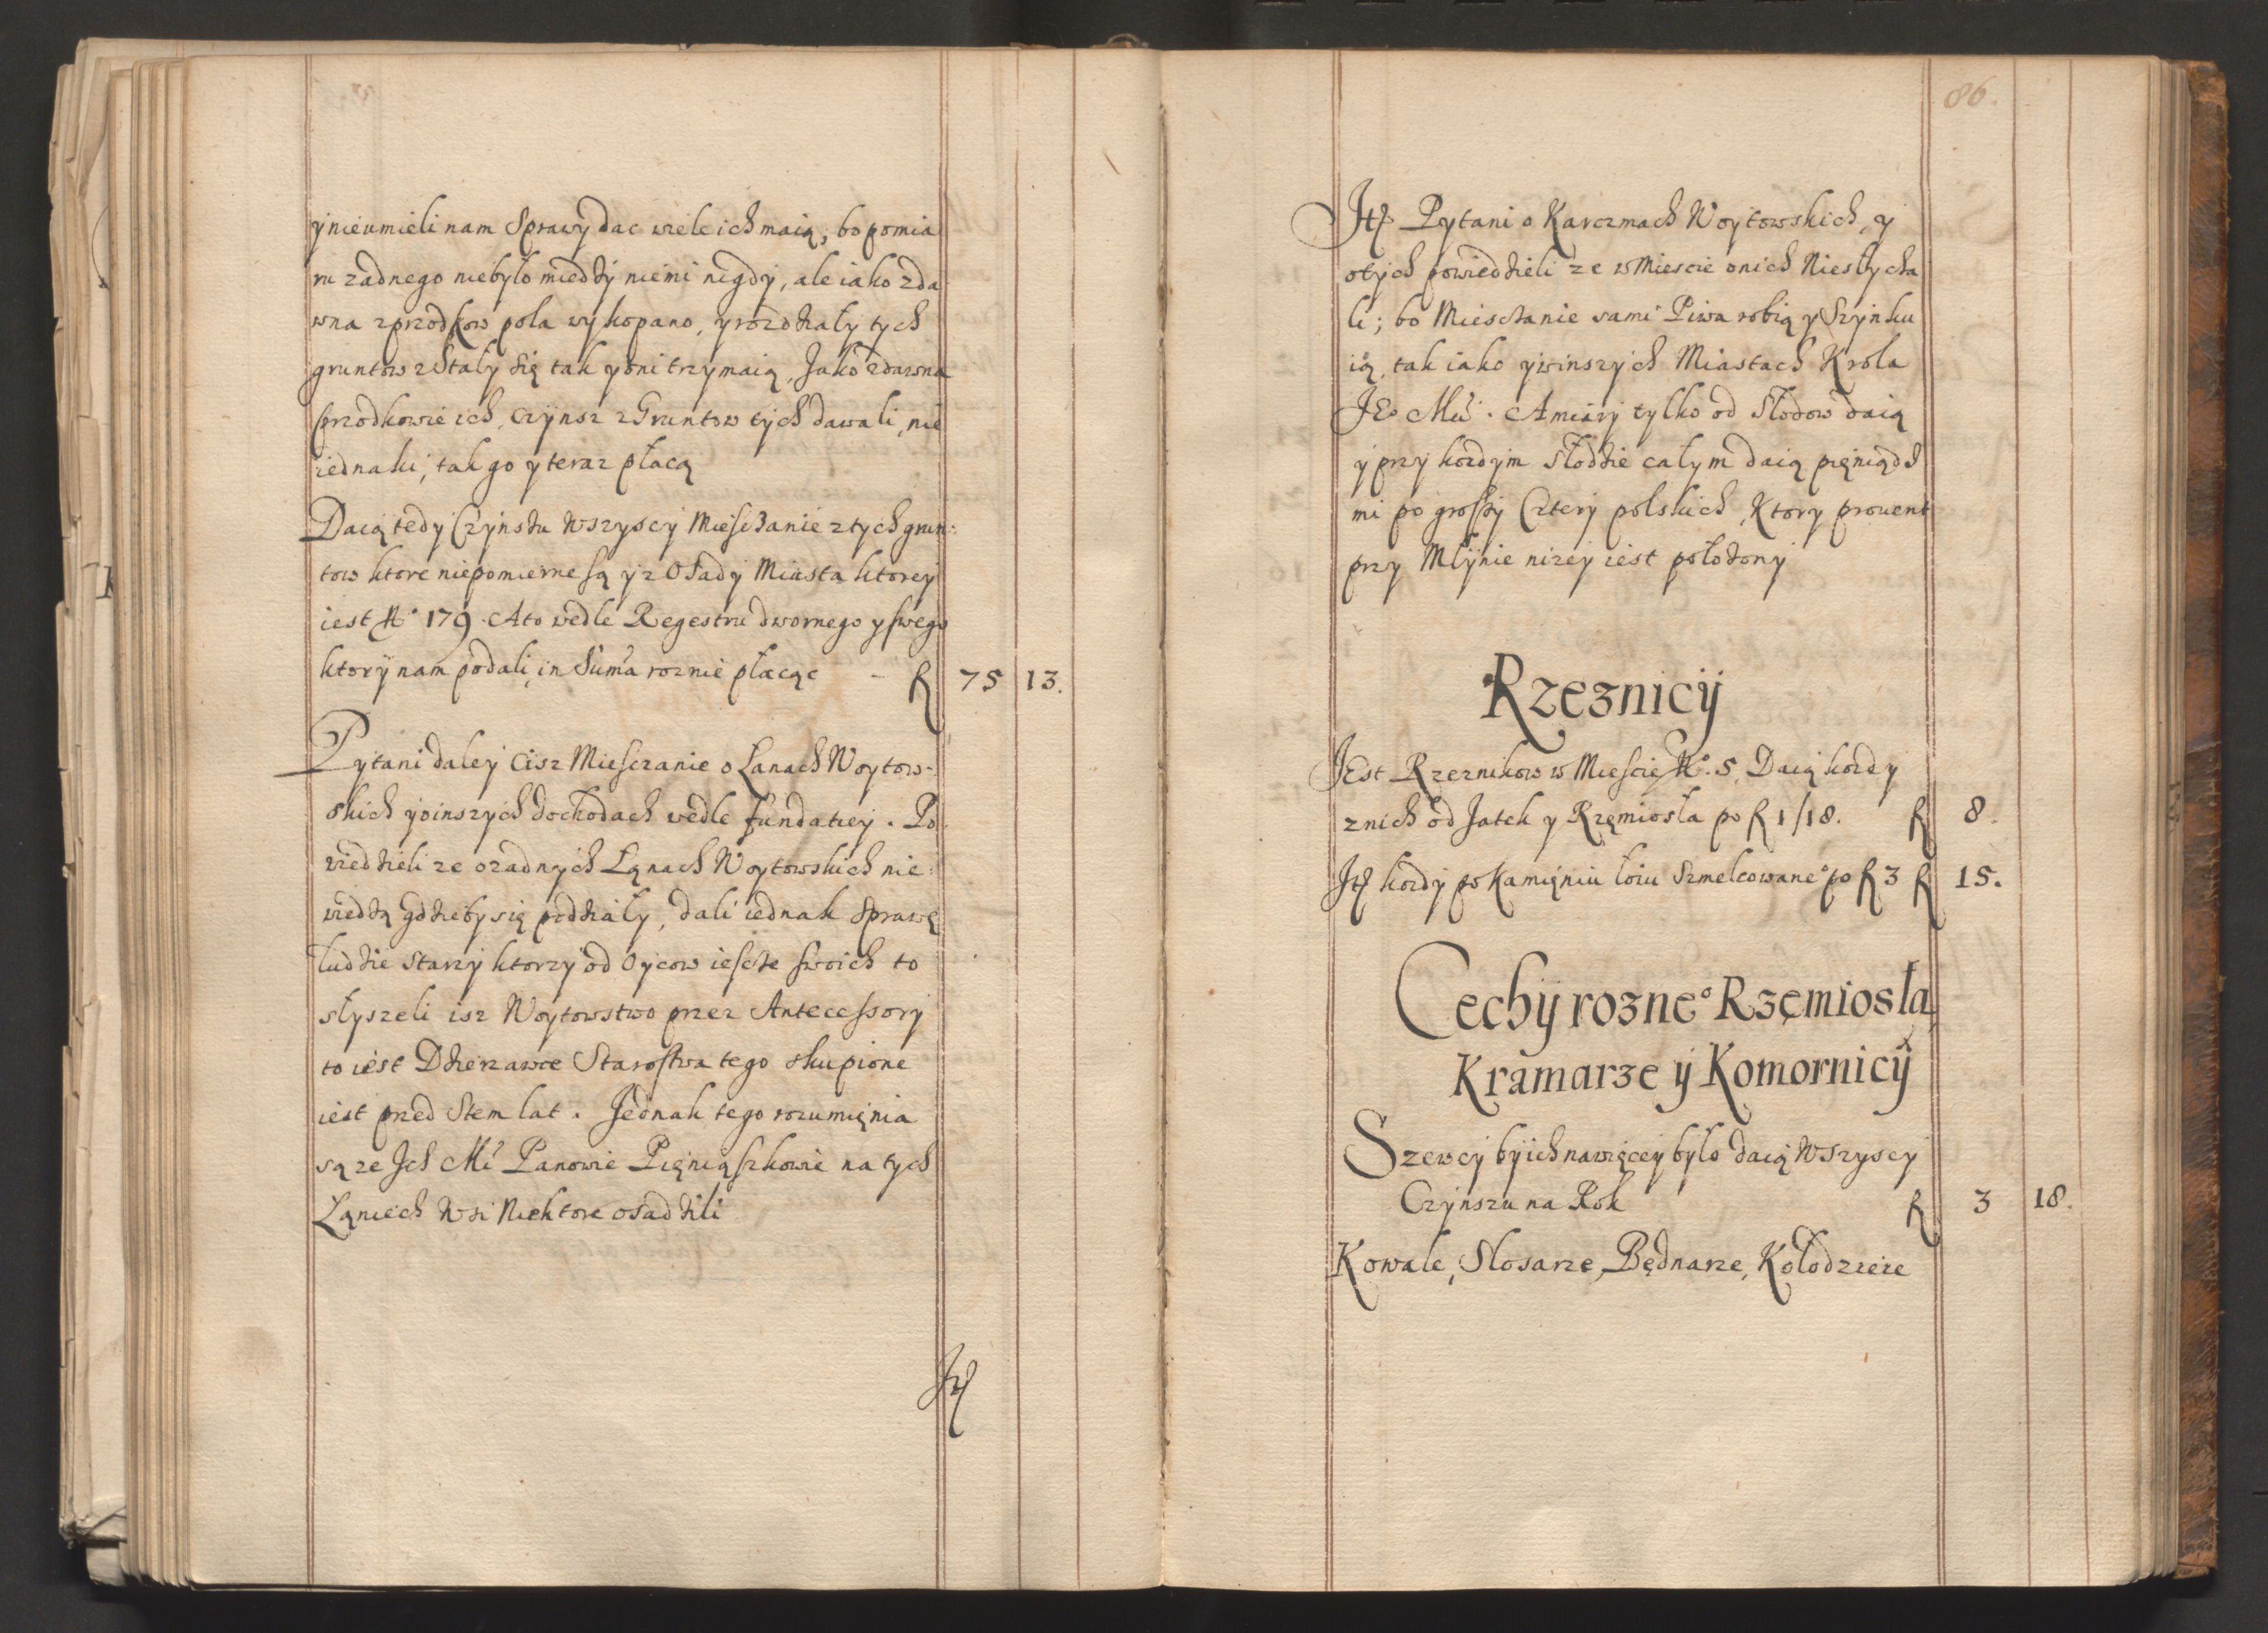 y nieumieli nam Sprawy dac wiele ich maią; bo pomia
ru zadnego niebyło miedzy niemi nigdy, ale iako zda
wna z przodkow pola wykopano, y rozdziały tych
gruntow Stały się tak y oni trzymaią, Jako zdawna
przodkowie ich, czynsz z Gruntow tych dawali, nie
iednaki, tak go y teraz płacą
Daią tedy Czynszu wszyscy Mieszczanie z tych grun:
tow ktore niepomierne są y z Osady Miasta ktorey
iest No 179. A to wedle Regestru dwornego y swego
ktory nam podali, in Suma roznie płacąc - f 75 13.
Pytani daley cisz Miesczanie o Łanach Woytow-
skich y oinszych dochodach wedle fundatiey. Po
wiedzieli ze o zadnych Łąnach Woytowskich nie
wiedzą gdzieby się podziały, dali iednak Sprawę
ludzie starzy ktorzy od Oycow ieszcze swoich to
słyszeli isz Woytowstwo przez Antecessory
to iest Dzierzawce Starostwa tego skupione
iest przed Stem lat. Jednak tego rozumięnia
są ze Ich Mć Panowie Pięniąszkowie na tych
Łąniech Wsi Niektore osadzili
Itē
86.
Itē Pytani o Karczmach Woytowskich, y
otych powiedzieli ze w Miescie onich Niesłycha
li; bo Miesczanie sami Piwa robią y Szynku
ią, tak iako y winszych Miastach Krola
JEo Mci. A miary tylko od Słodow daią
y przy kozdym słodzie całym daią pięniądz
mi po groszy Cztery polskich, Ktory prouent
przy Młynie nizey iest położony
Rzeznicy
JEst Rzeznikow w Miescie No. 5. Daią kozdy
znich od Jatek y Rzęmiosła po f 1/18. f 8.
Itē kozdy po Kamięniu łoiu Szmelcowaneo po f 3 f 15.
Cechy rozneo Rzęmiosła
Kramarze y Komornicy
Szewcy by ich nawięcey było daią Wszyscy
Czynszu na Rok f 3 18.
Kowale, Slosarze, Będnarze, Kołodzieie